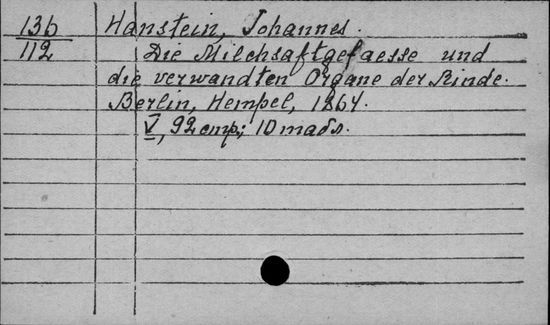 136 Hanstein, Johannes.
112 Die Milchsaftgefaesse und
die verwandten Organe der Rinde.
Berlin, Hempel, 1864.
V, 92 cmp; 10 maбл.